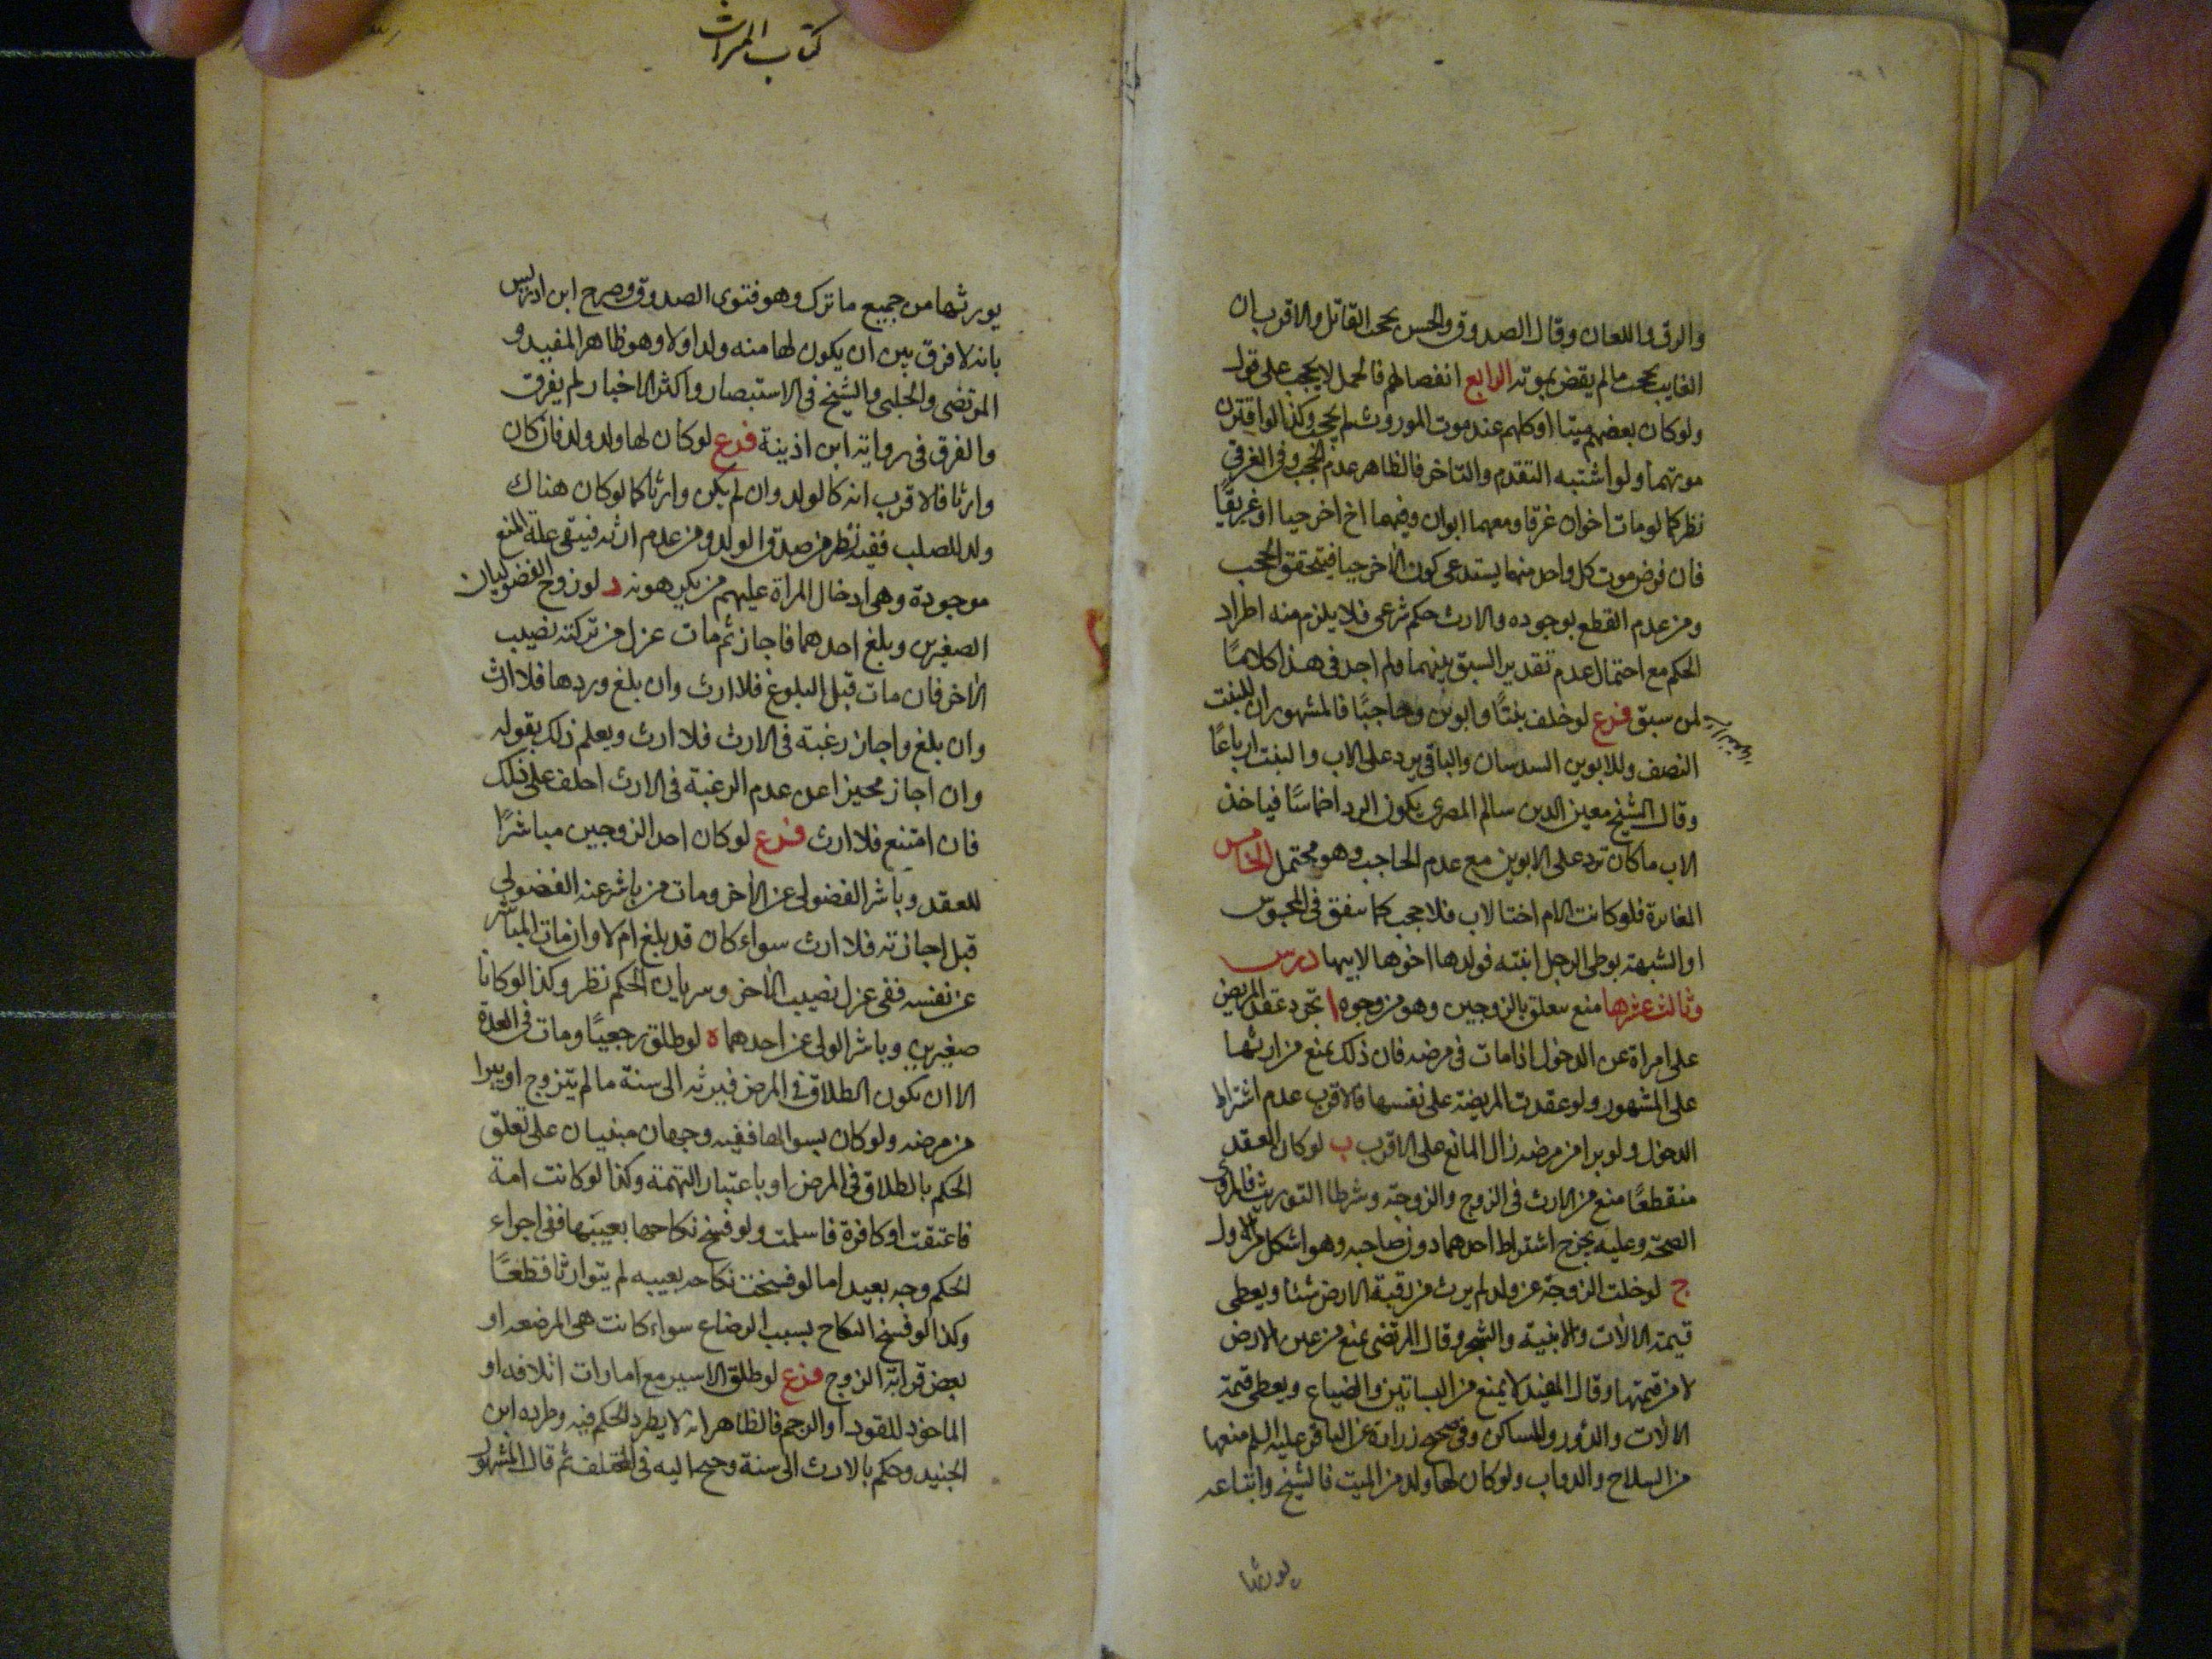 والرق واللعان وقال الصدوق والحسن يحجب القاتل والاقرب ان
الغايب يحجب ما لم يقض بموته الرابع انفصالهم فالحمل لا يحجب على قول
ولو كان بعضهم ميتا او كلهم عند موت الموروث لم يحجب وكذا لو اقترن
موتهما ولو اشتبه التقدم والتاخر فالظاهر عدم الحجب وفي الغرقى
نظر كما لو مات اخوان غرقا ومعهما ابوان ولهما اخ اخر حيا او غريقا
فان فرض موت كل واحد منهما يستدعي كون الاخر حيا فيتحقق الحجب
ومن عدم القطع بوجوده والارث حكم شرعي فلا يلزم منه اطراد
الحكم مع احتمال عدم تقدير السبق بينهما ولم اجد في هذا كلاما
لمن سبق فرع لو خلف بنتا وابوين وحاجبا فالمشهور ان للبنت
النصف وللابوين السدسان والباقي يرد على الاب والبنت ارباعا
وقال الشيخ معين الدين سالم المصري يكون الرد اخماسا فياخذ
الاب ما كان ترد على الابوين مع عدم الحاجب وهو محتمل الخامس
المغايرة فلو كانت الام اختا لاب فلا حجب كما يتفق في المجوس
او الشبهة بوطي الرجل ابنته فولدها اخوها لابيها درس
وثالث عشرها منع يتعلق بالزوجين وهو من وجوه ا تجرد عقد المريض
على امراة عن الدخول اذا مات في مرضه فان ذلك يمنع من ارثها
على المشهور ولو عقدت المريضة على نفسها فالاقرب عدم اشتراط
الدخول ولو برا من مرضه زال المانع على الاقرب ب لو كان العقد
منقطعا منع من الارث في الزوج والزوجة وشرطا التوريث فالاقرب
الصحة وعليه يخرج اشتراط احدهما دون صاحبه وهو اشكل من الاول
ج لو خلت الزوجة عن ولد لم يرث من رقبة الارض شئا ويعطى
قيمة الالات والابنية والشجر وقال المرتضى يمنع من عين الارض
لا من قيمتها وقال المفيد لا يمنع من البساتين والضياع ويعطى قيمة
الالات والدور والمساكن وفي صحيح زرارة عن الباقر عليه السلم منعها
من السلاح والدواب ولو كان لها ولد من الميت فالشيخ واتباعه
يورثها
كتاب الميراث
يورثها من جميع ما ترك وهو فتوى الصدوق وصرح ابن ادريس
بانه لا فرق بين ان يكون لها منه ولد اولا وهو ظاهر المفيد و
المرتضى والحلبي والشيخ في الاستبصار واكثر الاخبار لم يفرق
والفرق في رواية ابن اذينة فرع لو كان لها ولد ولد فان كان
وارثا فالاقرب انه كالولد وان لم يكن وارثا كما لو كان هناك
ولد للصلب ففيه نظر من صدق الولد ومن عدم ارثه فيبقى علة المنع
موجودة وهي ادخال المراة عليهم من يكرهونه د لو زوج الفضوليان
الصغيرين وبلغ احدهما فاجاز ثم مات عزل من تركته نصيب
الاخر فان مات قبل البلوغ فلا ارث وان بلغ وردها فلا ارث
وان بلغ واجاز رغبة في الارث فلا ارث ويعلم ذلك بقوله
وان اجاز مخبرا عن عدم الرغبة في الارث احلف على ذلك
فان امتنع فلا ارث فرع لو كان احد الزوجين مباشرا
للعقد وباشر الفضولي عن الاخر ومات من باشر عنه الفضولي
قبل اجازته فلا ارث سواء كان قد بلغ ام لا وان مات المباشر
عن نفسه ففي عزل نصيب الاخر وسريان الحكم نظر وكذا لو كانا
صغيرين وباشر الولي عن احدهما ه لو طلق رجعيا ومات في العدة
الا ان يكون الطلاق في المرض فيرثه الى سنة ما لم يتزوج او يبرا
من مرضه ولو كان بسوالها ففيه وجهان مبنيان على تعلق
الحكم بالطلاق في المرض او باعتبار التهمة وكذا لو كانت امة
فاعتقت او كافرة فاسلمت ولو فسخ نكاحها بعيبها ففي اجراء
الحكم وجه بعيد اما لو فسخت نكاحه بعيبه لم يتوارثا قطعا
وكذا لو فسخ النكاح بسبب الرضاع سواء كانت هي المرضعه او
بعض قرابة الزوج فرع لو طلق الاسير مع امارات اتلافه او
الماخوذ للقود او الرجم فالظاهر انه لا يطرد الحكم فيه وطرده ابن
الجنيد وحكم بالارث الى سنة وجنح اليه في المختلف ثم قال المشهور